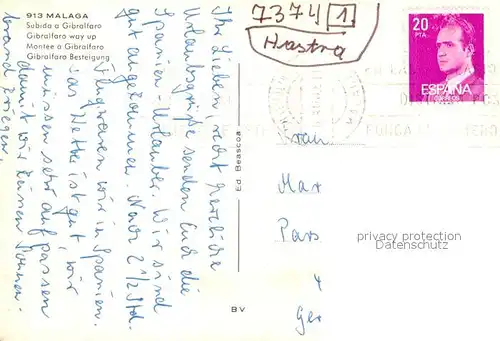 913 MALAGA
Subida a Gibralfaro
Gibralfaro way up
Montée a Gibralfaro
Gibralfaro Besteigung
7374 1
Hrastra
20
PTA
ESPAÑA
CORREOS
Ihr Lieben, recht herzliche
Urlaubsgrüße senden Euch die
Spanien-Urlauber. Wir sind
gut angekommen. Nach 2 1/2 Std.
Flug waren wir in Spanien.
Das Wetter ist gut, wir
müssen sehr aufpassen
damit wir keinen Sonnen-
brand kriegen.
Ed. Beascoa
BV
Mar
Pars
Ger
privacy protection
Datenschutz